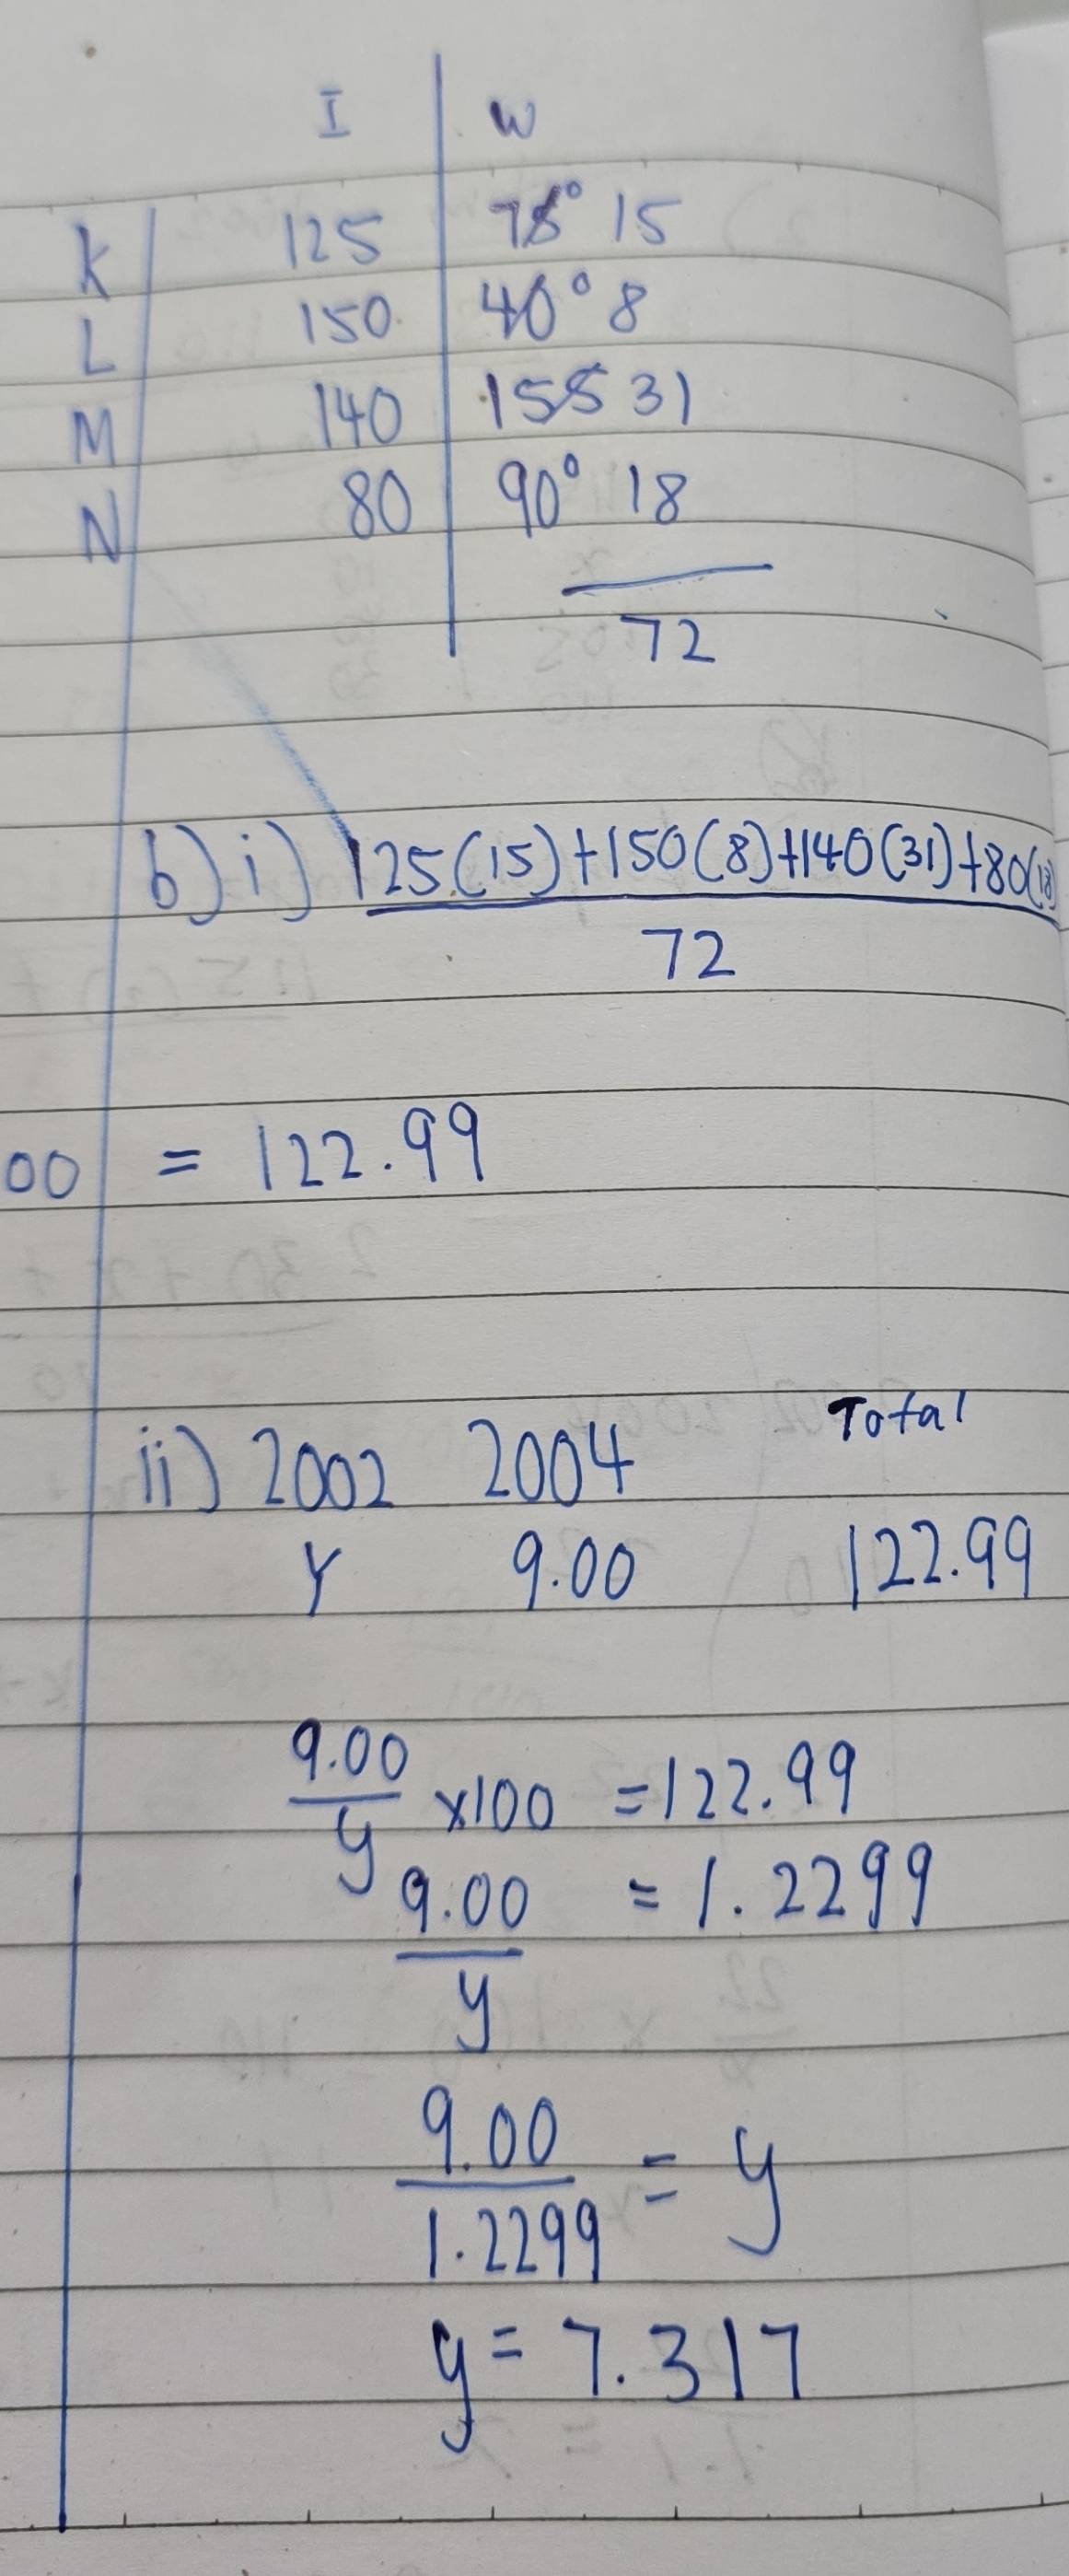 I W
K 125 75° 15
L 150 40° 8
M 140 155 31
N 80 90° 18
72
b) i) 125(15)+150(8)+140(31)+80(18)
72
00 = 122.99
Total
ii) 2002 2004
Y 9.00 122.99
9.00
y ×100 =122.99
9.00 = 1.2299
y
9.00
1.2299 = y
y = 7.317